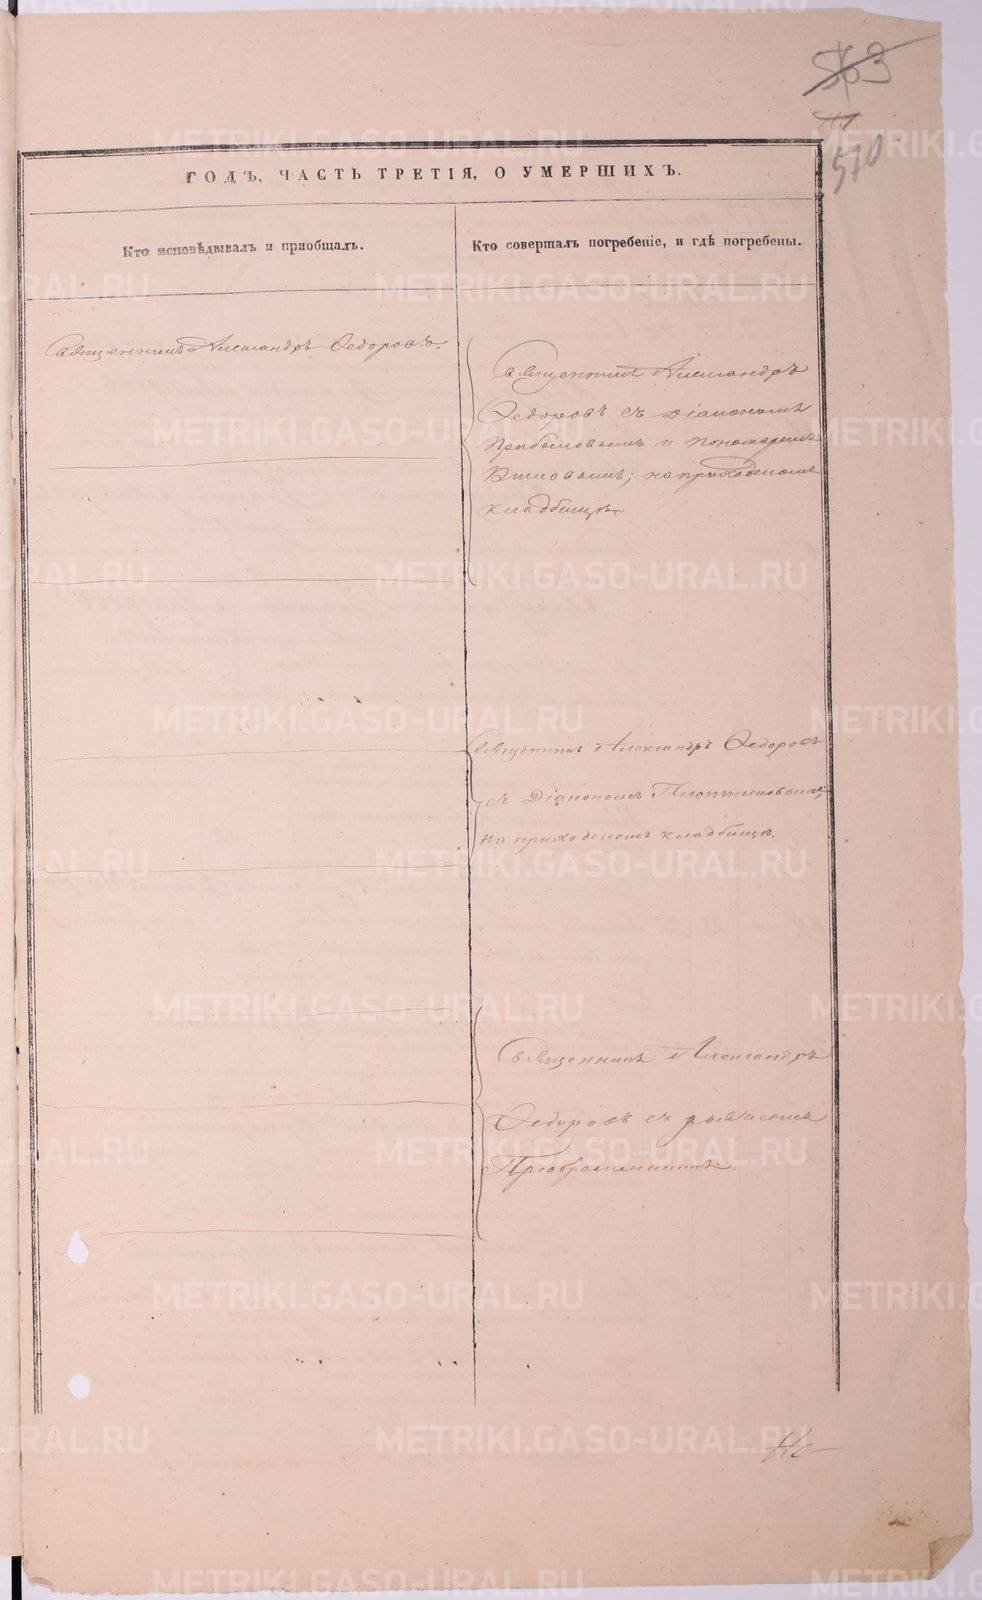 563
570
ГОДЪ, ЧАСТЬ ТРЕТІЯ, О УМЕРШИХЪ.
Кто исповѣдывалъ и пріобщалъ.
Кто совершалъ погребеніе, и гдѣ погребены.
Священникъ Александръ Ѳедоровъ.
Священникъ Александръ
Ѳедоровъ съ Діакономъ
Прибыловымъ и Пономаремъ
на приходскомъ
кладбищѣ
Священникъ Александръ Ѳедоровъ
съ Діакономъ Плотниковымъ,
на приходскомъ кладбищѣ.
Священникъ Александръ
Ѳедоровъ съ
Преображенскимъ.
METRIKI.GASO-URAL.RU